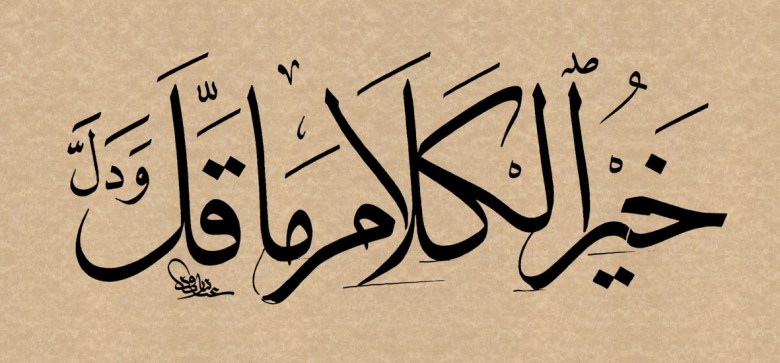 خَيْرُ ٱلْكَلَامِ مَا قَلَّ وَدَلَّ